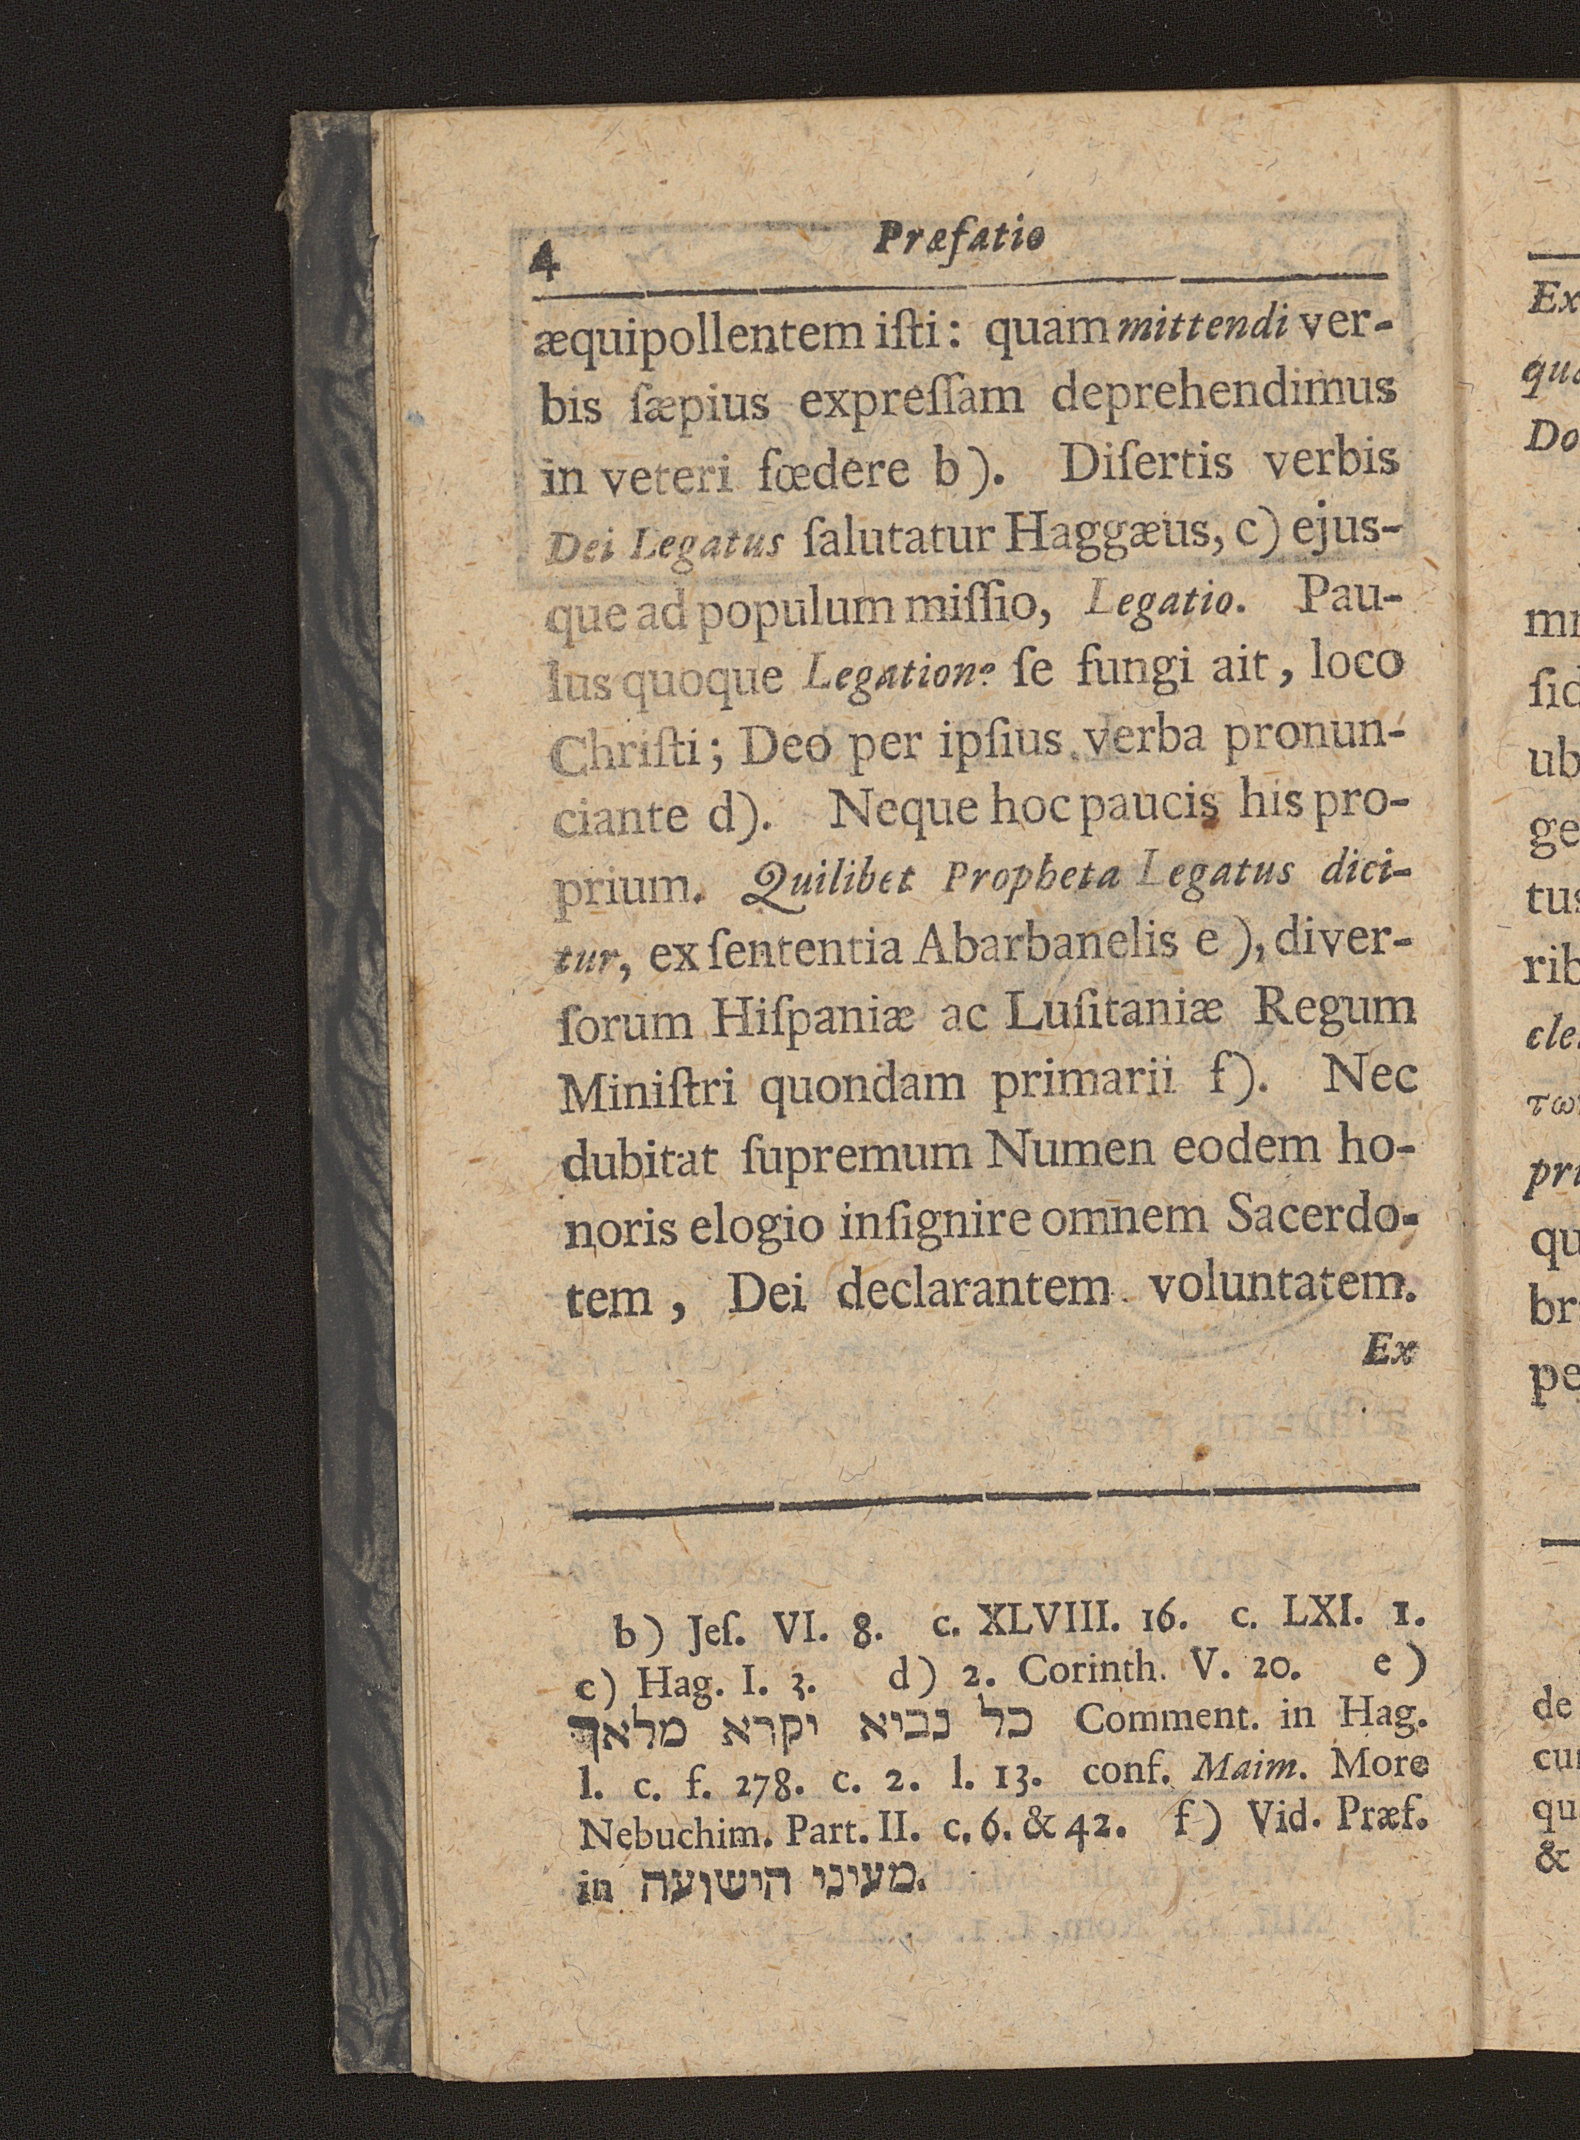 4 Præfatio
æquipollentem iſti: quam mittendi ver-
bis ſæpius expreſſam deprehendimus
in veteri fœdere b). Diſertis verbis
Dei Legatus ſalutatur Haggæus, c) ejus-
que ad populum miſſio, Legatio. Pau-
lus quoque Legatione ſe fungi ait, loco
Chriſti; Deo per ipſius verba pronun-
ciante d). Neque hoc paucis his pro-
prium. Quilibet Propheta Legatus dici-
tur, ex ſententia Abarbanelis e), diver-
ſorum Hiſpaniæ ac Luſitaniæ Regum
Miniſtri quondam primarii f). Nec
dubitat ſupremum Numen eodem ho-
noris elogio inſignire omnem Sacerdo-
tem, Dei declarantem voluntatem.
Ex
b) Jeſ. VI. 8. c. XLVIII. 16. c. LXI. 1.
c) Hag. I. 3. d) 2. Corinth. V. 20. e)
כל נביא יקרא מלאך Comment. in Hag.
l. c. f. 278. c. 2. l. 13. conf. Maim. More
Nebuchim. Part. II. c. 6. & 42. f) Vid. Præf.
in מעיני הישועה.
Ex
qua
Do
mn
ſid
ub
ge
tus
rib
cle
τω
pri
qu
br
pe
de
cu
qu
&